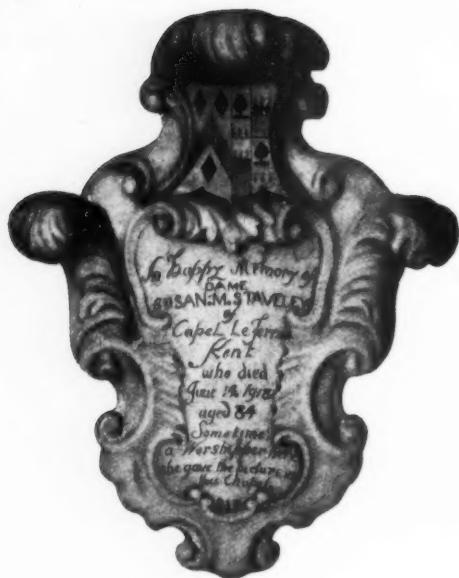 In Happy Memory of
DAME
SUSAN.M.STAVELEY
of
Capel Le Ferne
Kent
who died
June 14
aged 84
Sometime
a Worshipper here
she gave the pictures in
this Church